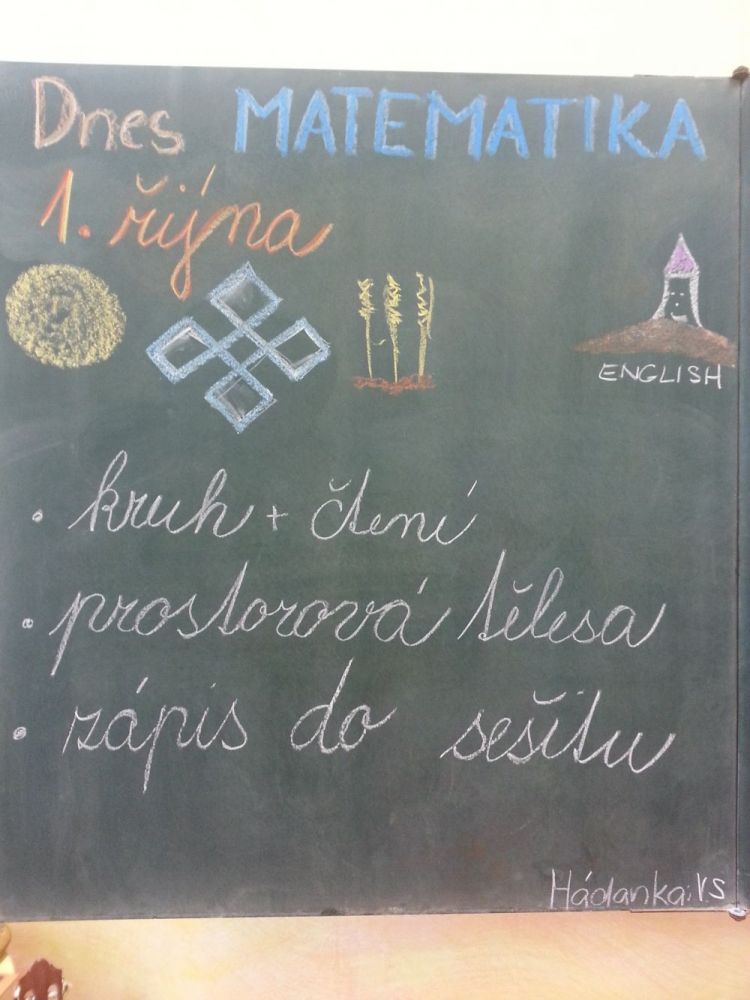 Dnes MATEMATIKA
1. října
ENGLISH
• kruh + čtení
• prostorová tělesa
• zápis do sešitu
Hádanka: VS